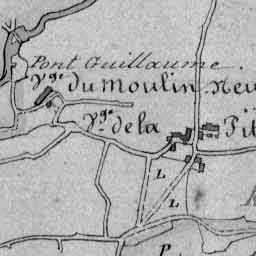 Pont Guillaume.
V.ge du Moulin Neu
V.ge de la Pit
L
L
P